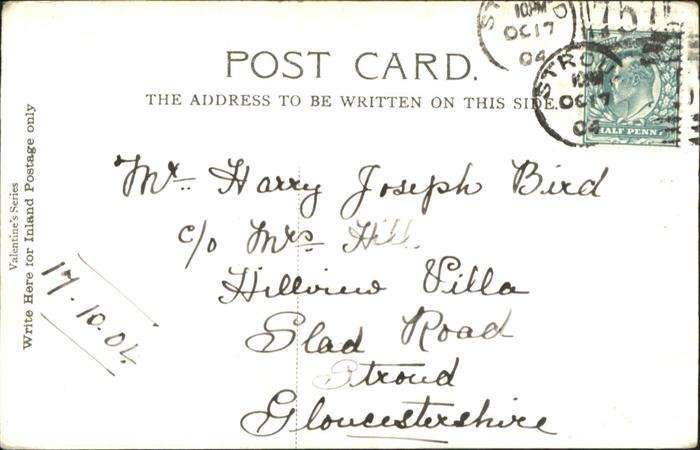 POST CARD.
THE ADDRESS TO BE WRITTEN ON THIS SIDE.
Valentine's Series
Write Here for Inland Postage only
17.10.04
Mr. Harry Joseph Bird
c/o Mrs Hill
Hillview Villa
Slad Road
Stroud
Gloucestershire
10PM
OC 17
04
757
STROUD
10PM
OC 17
04
HALF PENNY